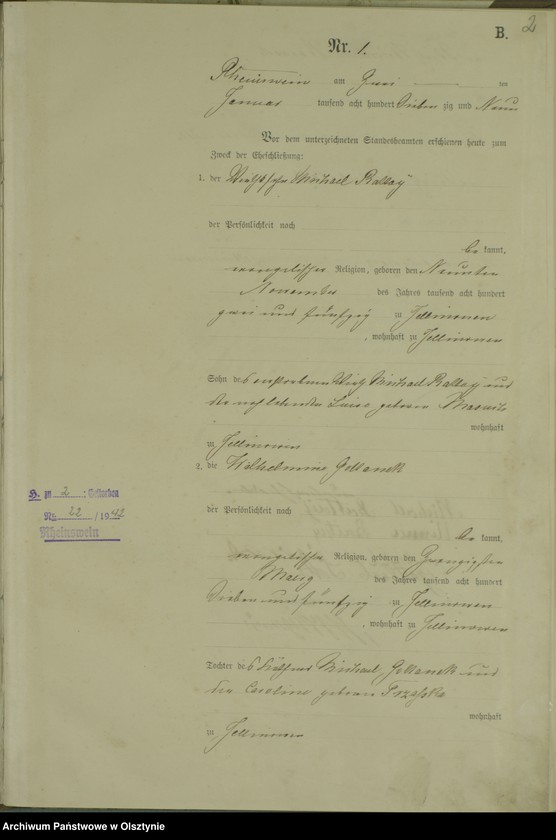 B. 2
Nr. 1.
Rheinswein am Zwei ten
Januar tausend acht hundert sieben zig und Neun
Vor dem unterzeichneten Standesbeamten erschienen heute zum
Zweck der Eheschließung:
1. der Wirthssohn Michael Ballay
der Persönlichkeit nach
be kannt,
evangelischer Religion, geboren den Neunten
November des Jahres tausend acht hundert
zwei und fünfzig zu Jellinowen
, wohnhaft zu Jellinowen
Sohn des verstorbenen Wirth Michael Ballay und
der noch lebenden Luise geborene
wohnhaft
in Jellinowen
2. die Wilhelmine Gollanek
der Persönlichkeit nach
be kannt,
evangelischer Religion, geboren den Zwanzigsten
Maerz des Jahres tausend acht hundert
sieben und fünfzig zu Jellinowen
, wohnhaft zu Jellinowen
Tochter des Michael Gollanek und
der Caroline geborene
wohnhaft
in Jellinowen
H. zu 2 : Gestorben
Nr. 22 / 1942
Rheinswein
Archiwum Państwowe w Olsztynie